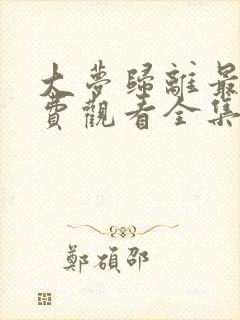 大夢歸離最
費觀看全集
鄭碩邵